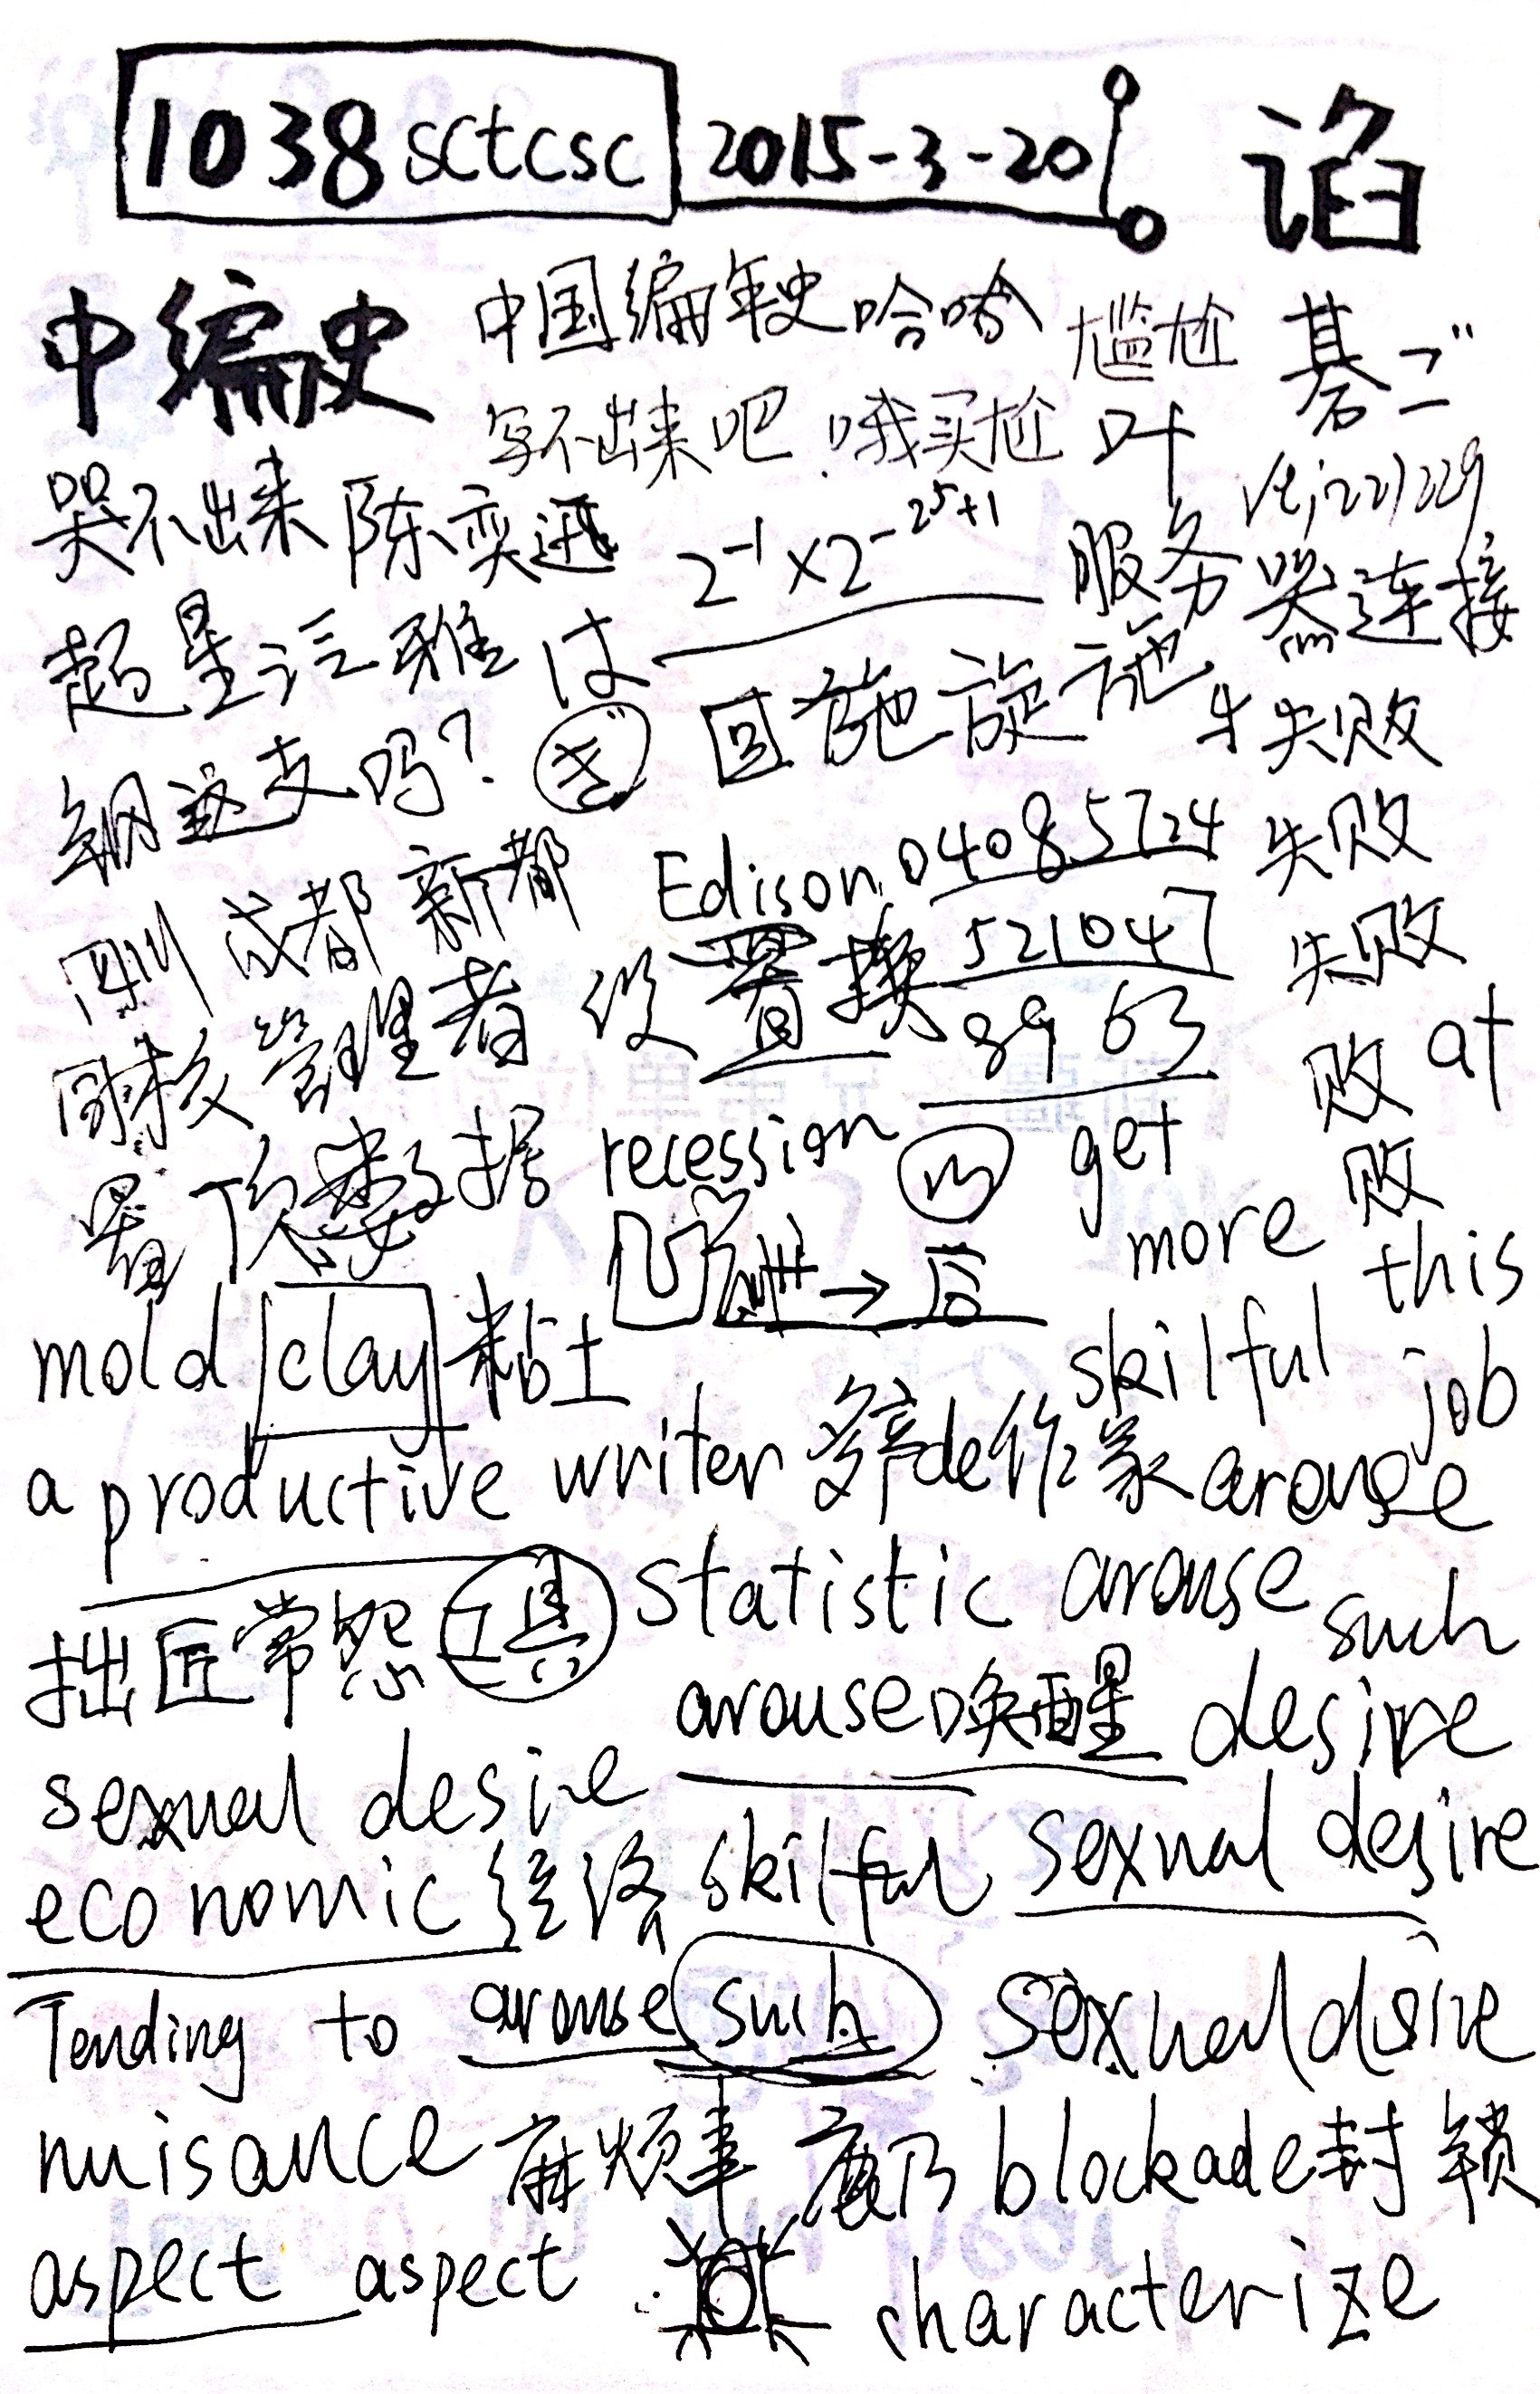 1038 sctcsc 2015-3-20 谄
中编史 中国编年史 哈哈 尴尬 碁二"
写不出来吧 哦买尬 叶
哭不出来 陈奕迅 2⁻¹×2⁻²⁵⁺¹ 服务器连接
超星泛雅 は 回施旋施 失败
钢这支吗? 失败
四川 成都 新都 Edison 04085724 失败
网校管理者 设置换 521047 败 at
署顶数据 recession 8963 败
in get more this
mold clay 粘土 凹 → 后 skilful job
a productive writer 多产de作家 arouse
拙匠常怨工具 statistic arouse such
arouse唤醒 desire
sexual desire
economic 经济 skilful sexual desire
Tending to arouse such sexual desire
nuisance 麻烦事 blockade封锁
aspect aspect characterize